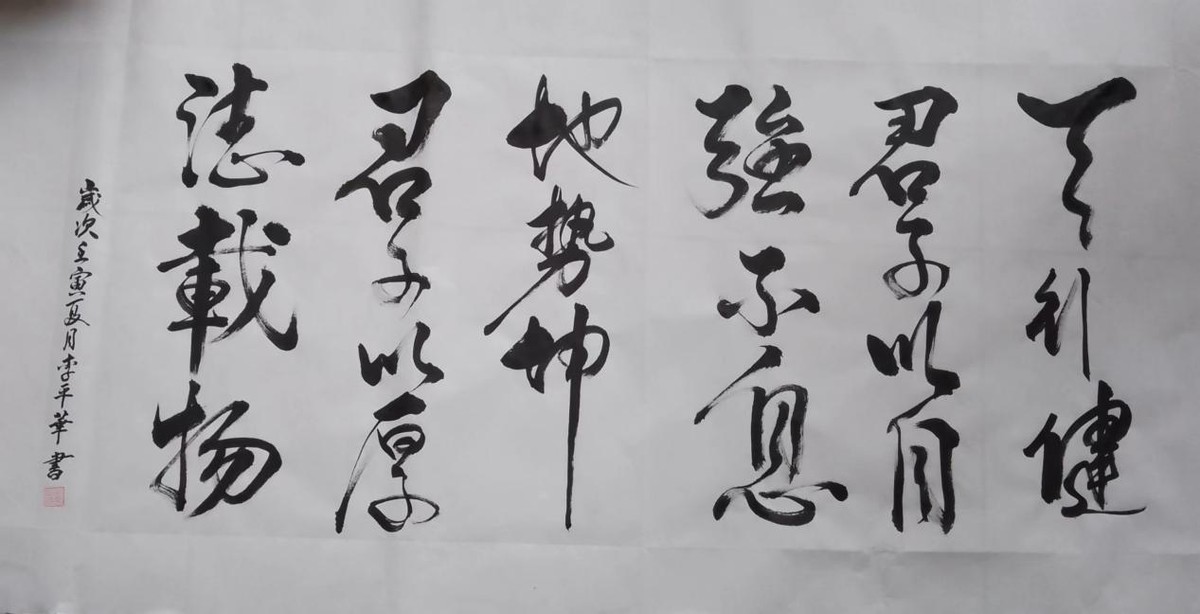 天行健
君子以自
強不息
地勢坤
君子以厚
德載物
歲次壬寅夏月李平華書